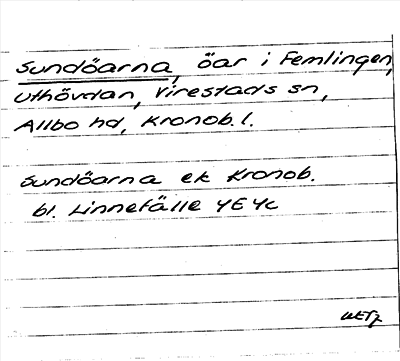 Sundöarna, öar i Femlingen,
Uthövdan, Virestads sn,
Allbo hd, Kronob. l.
Sundöarna ek Kronob.
bl. Linnefälle 4E4c